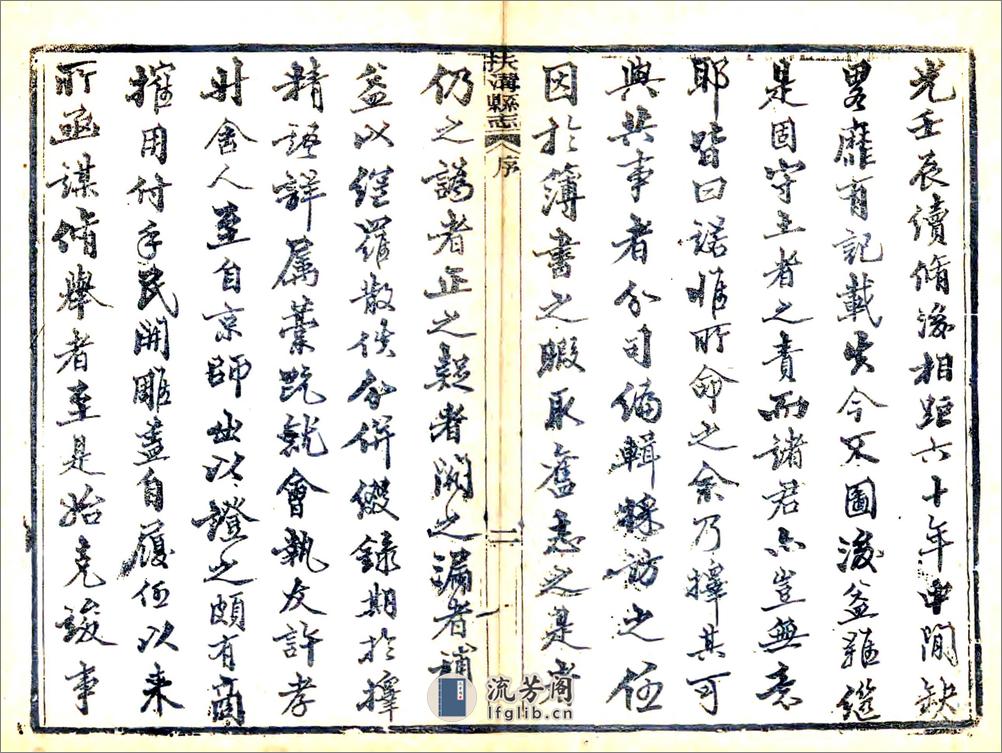 光壬辰續脩後相距六十年中間缺
畧靡有記載失今不圖後益難繼
是固守土者之責而諸君亦豈無意
耶皆曰諾惟所命之余乃擇其可
與共事者分司編輯採訪之任
因於簿書之暇取舊志之是者
扶溝縣志
序
二
仍之譌者正之疑者闕之漏者補
益以網羅散佚分併綴錄期於擇
精語詳屬藁既就會執友許孝
舍人至自京師出以證之頗有商
搉用付手民開雕蓋自履任以來
所亟謀脩舉者至是始克竣事
流芳阁
lfglib.cn